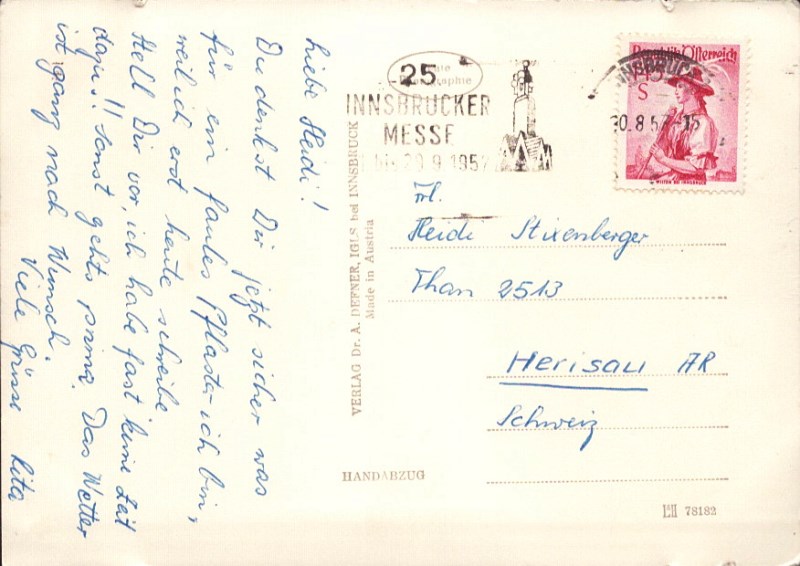 Liebe Heidi!
Du denkst Dir jetzt sicher was
für ein faules Pflaster ich bin,
weil ich erst heute schreibe.
Stell Dir vor, ich habe fast keine Zeit
dazu!! Sonst gehts prima. Das Wetter
ist ganz nach Wunsch.
Viele Grüsse Rita
VERLAG Dr. A. DEFNER, IGLS bei INNSBRUCK
Made in Austria
HANDABZUG
25
INNSBRUCKER
MESSE
bis 29 9 1957
Republik Österreich
S
INNSBRUCK
30.8.57-15
Frl.
Heidi Stixenberger
Than 2513
Herisau AR
Schweiz
78182